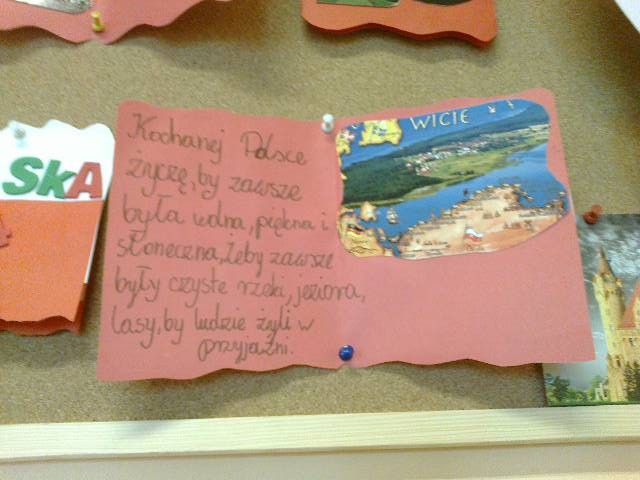 SkA
Kochanej Polsce
życzę, by zawsze
była wolna, piękna i
słoneczna, żeby zawsze
były czyste rzeki, jeziora,
lasy, by ludzie żyli w
przyjaźni.
WICIE